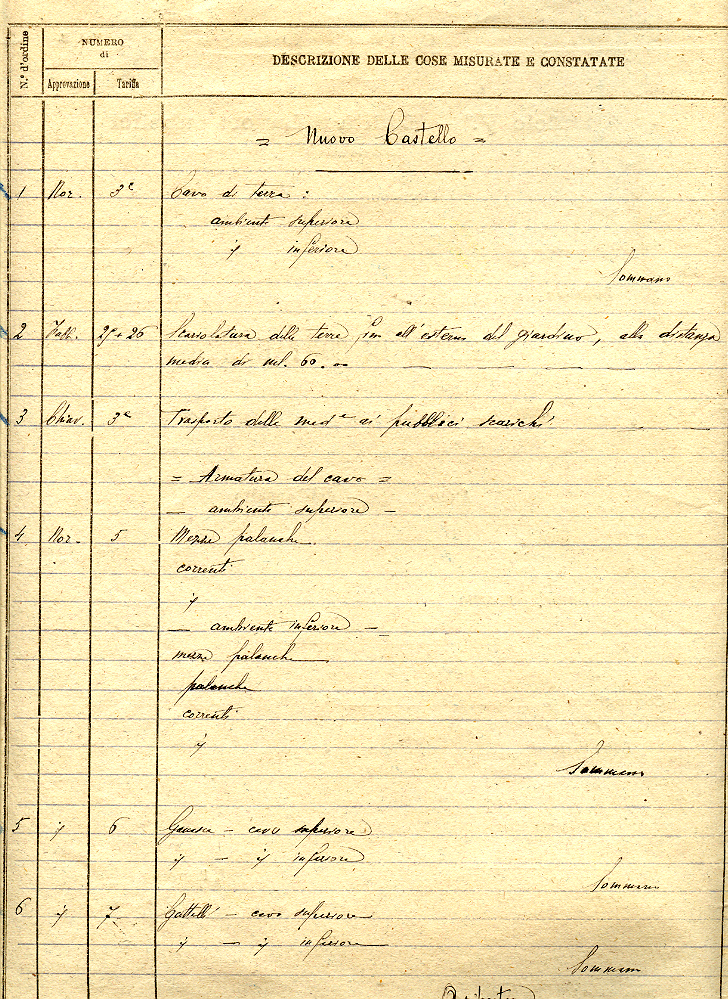 N.° d'ordine
NUMERO
di
Approvazione Tariffa
DESCRIZIONE DELLE COSE MISURATE E CONSTATATE
= Nuovo Castello =
1 Nor. 3ᵉ Cavo di terra :
ambiente superiore
id inferiore
Sommano
2 25+26 Scariolatura delle terre fin all'esterno del giardino, alla distanza
media di ml. 60.00
3 Chiav. 3ᵉ Trasporto delle medᵉ ai pubblici scarichi
= Armatura del cavo =
— ambiente superiore —
4 Nor. 5 Mezze palanche
correnti
id
— ambiente inferiore —
mezze palanche
palanche
correnti
id
Sommano
5 id 6 cavo superiore
id — id inferiore
Sommano
6 id 7 Gattelli — cavo superiore
id — id inferiore
Sommano